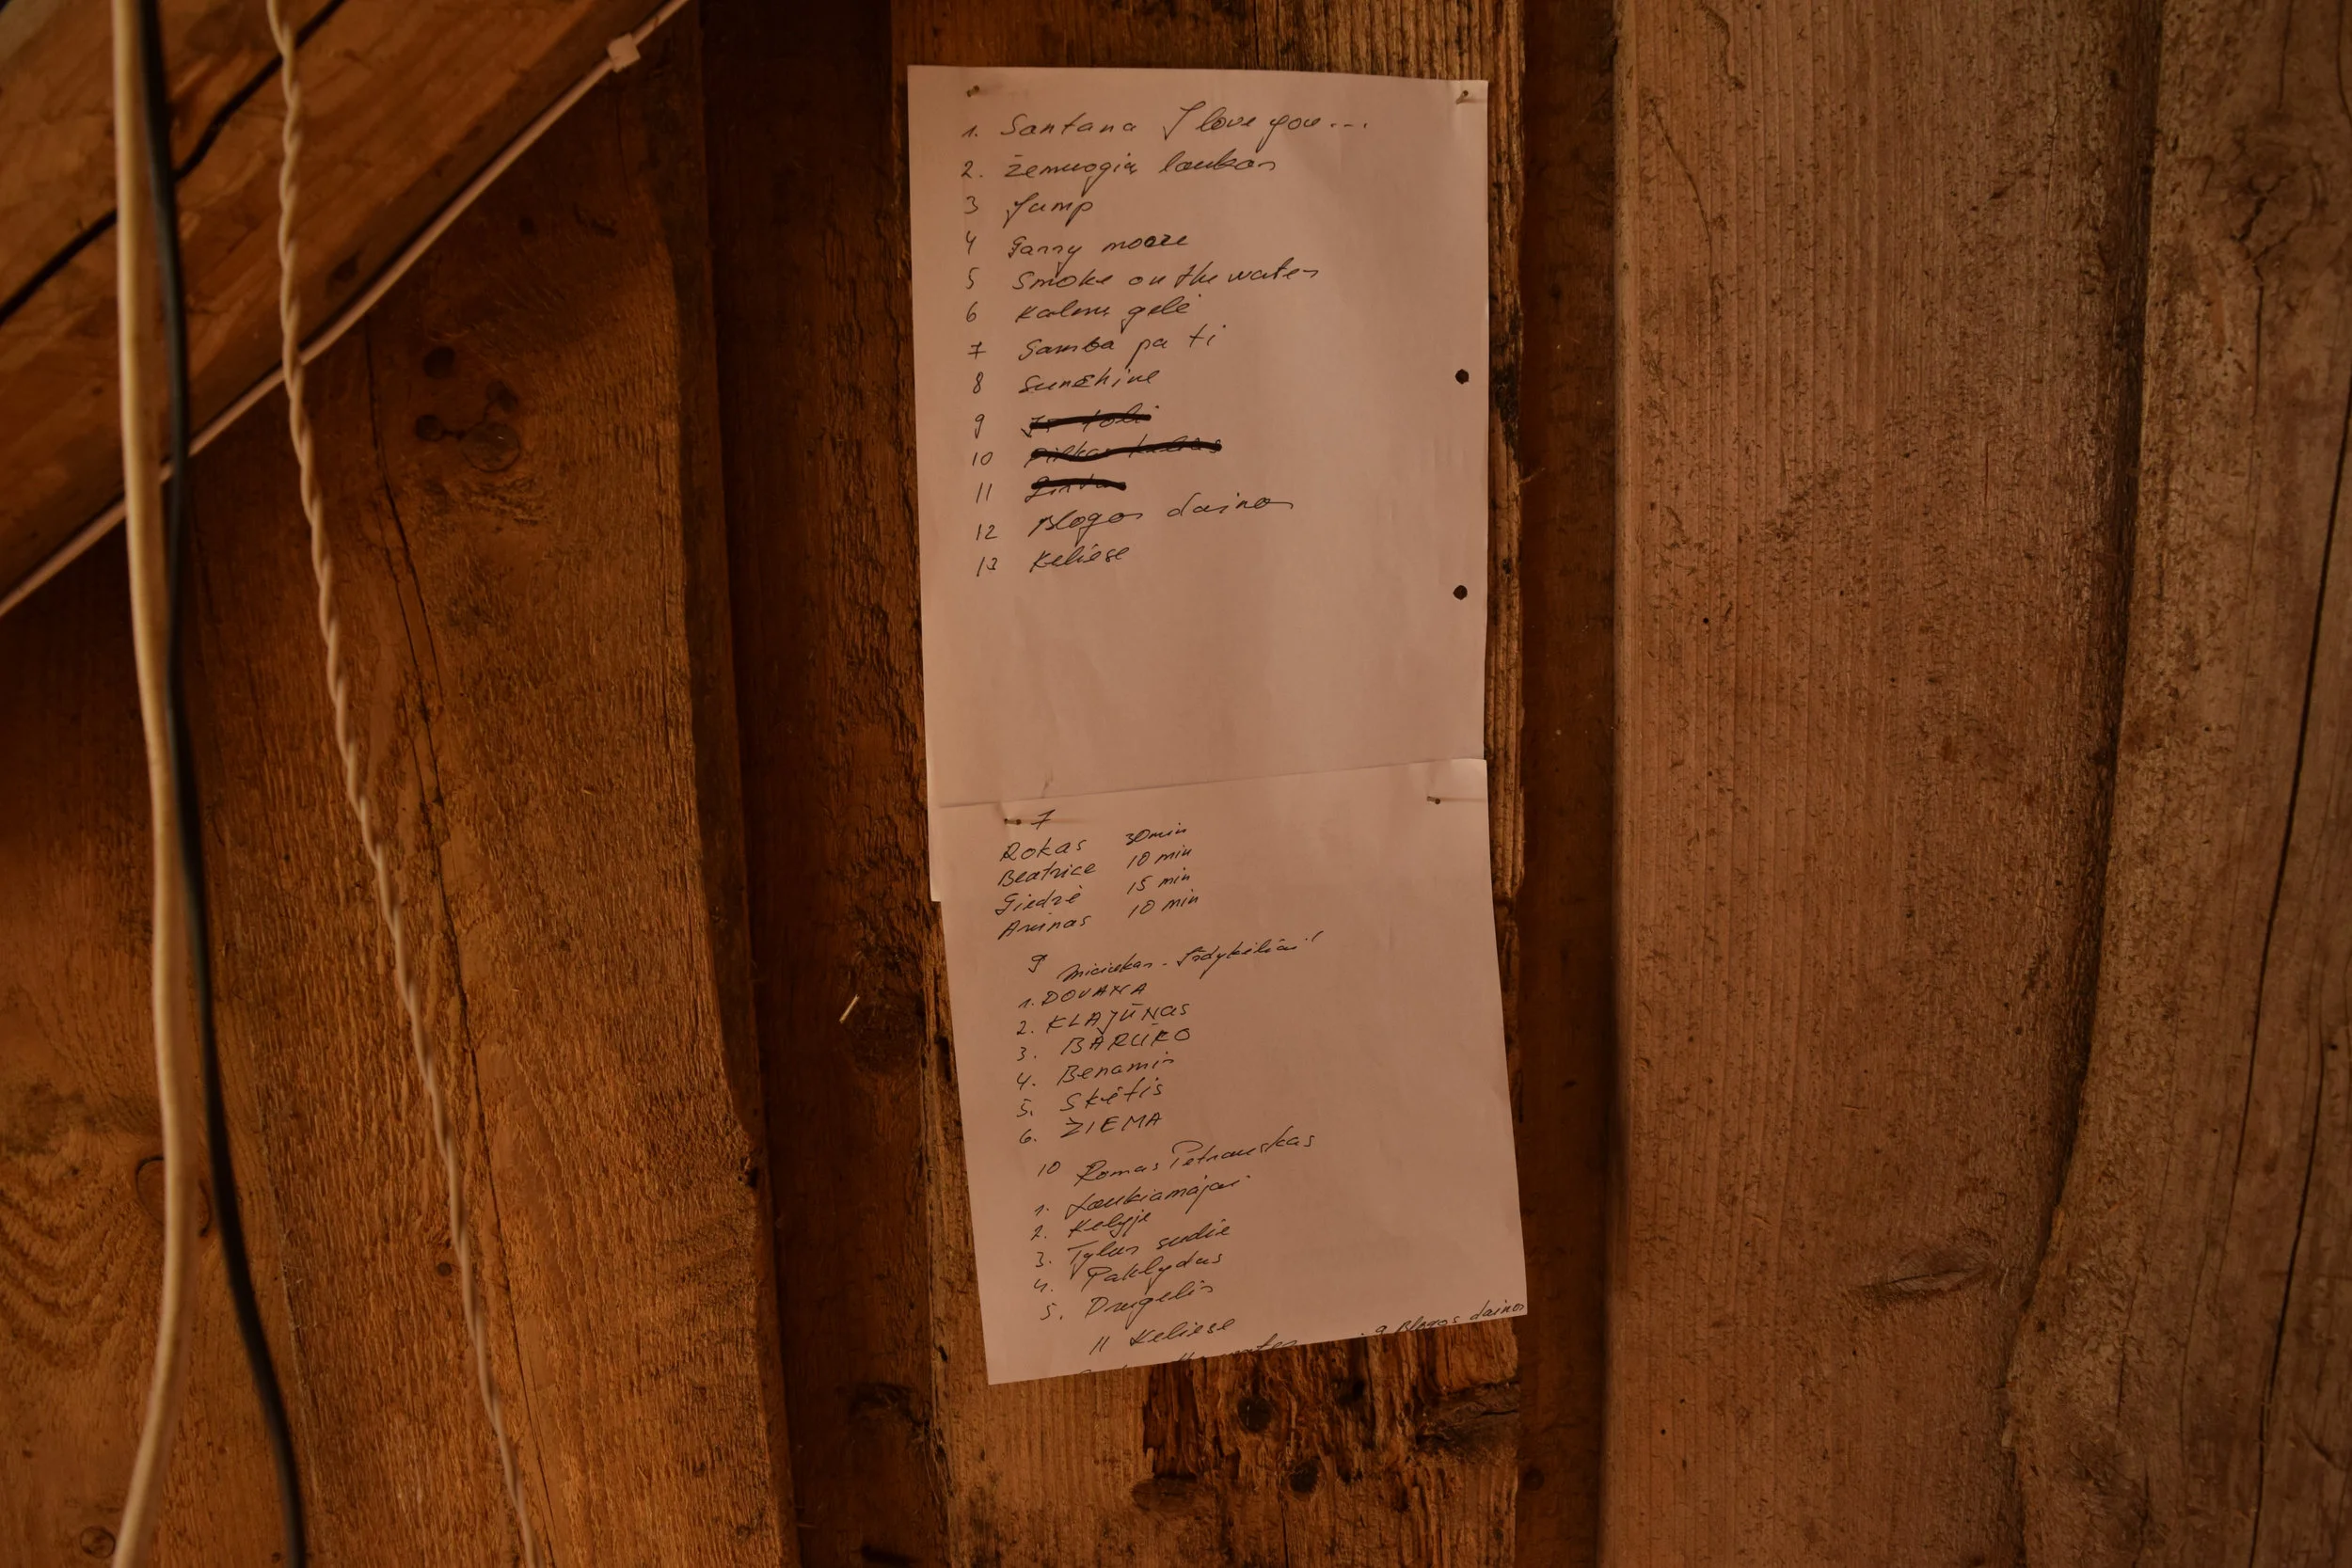 1. Santana I love you...
2. žemuogių laukas
3 Jump
4 Garry moore
5 Smoke on the water
6 Kalnų gėlė
7 Samba pa ti
8 Sunshine
9
10
11
12 Blogos dainos
13 Keliese
7
Rokas 30 min
Beatrice 10 min
Giedrė 15 min
Arūnas 10 min
9
1. DOVANA
2. KLAJŪNAS
3. BARŪRO
4. Benamis
5. Skėtis
6. ŽIEMA
10 Romas Petrauskas
1. Laukiamajai
2. Kelyje
3. Tylus sudie
4. Paklydus
5. Drugelis
11 Keliese
the water 9 Blogos dainos